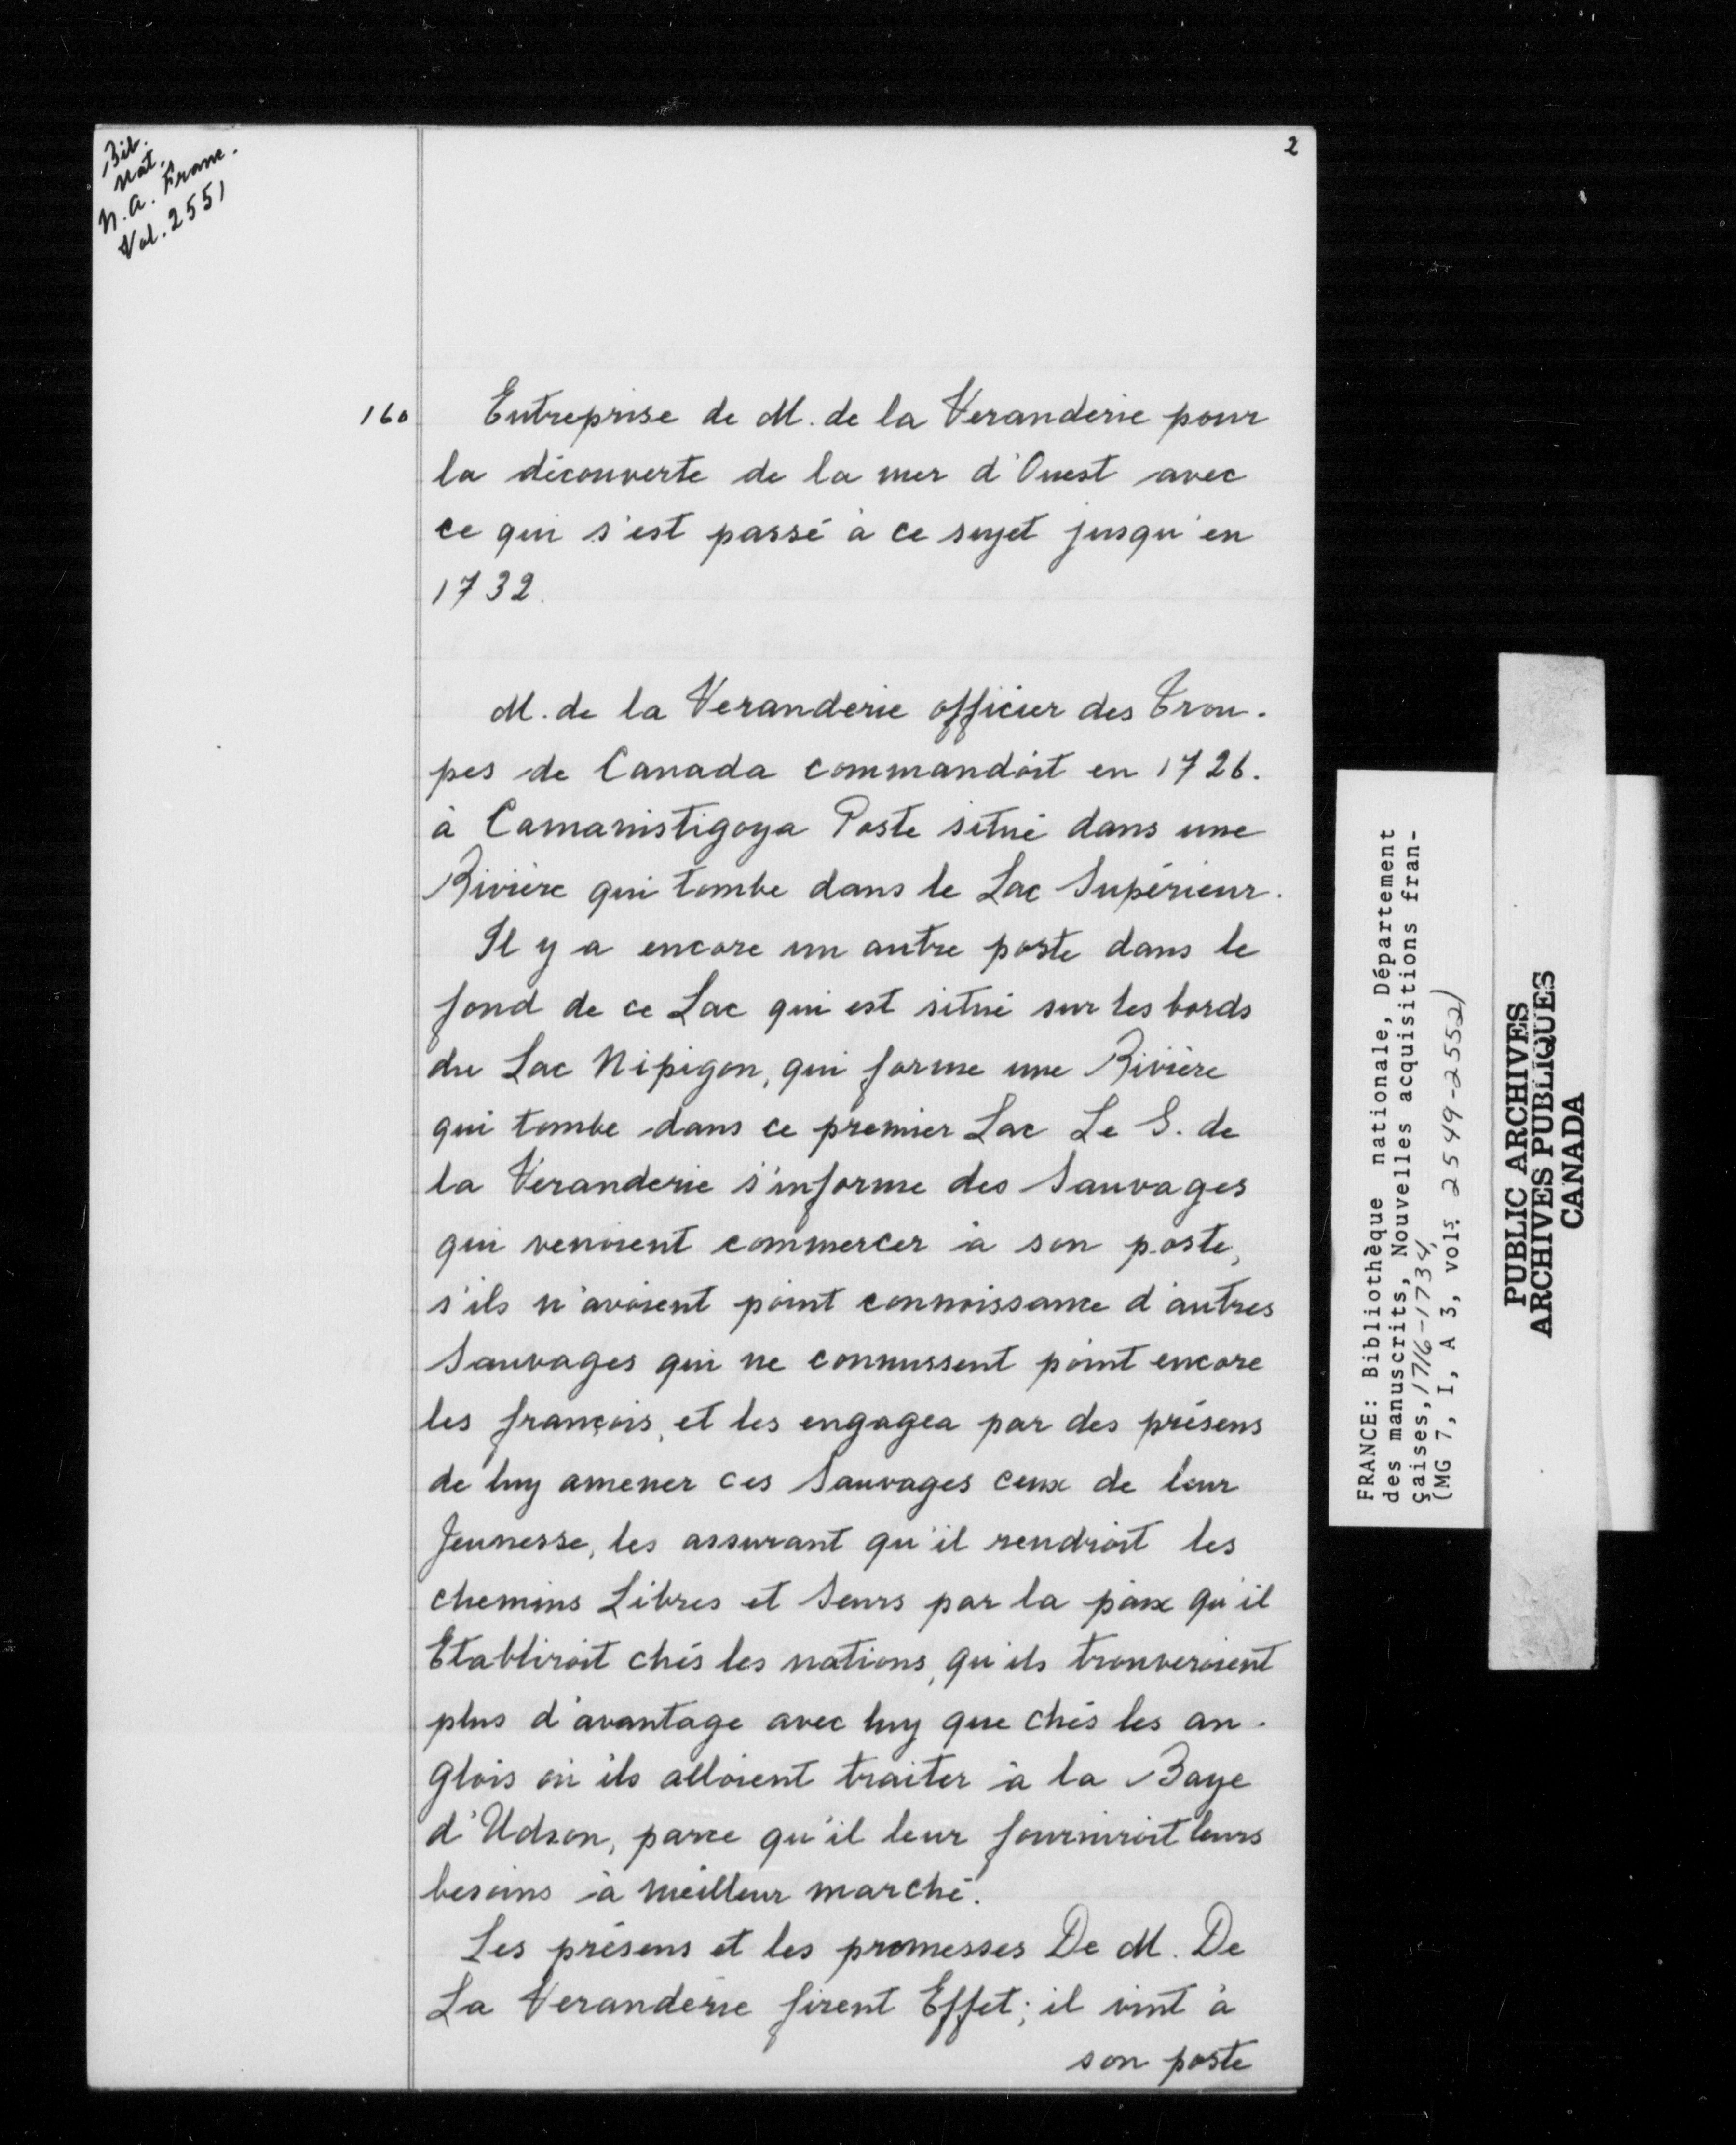 Bib.
Nat.
N.A. Franc.
Vol. 2551
2
160
Entreprise de M. de la Veranderie pour
la découverte de la mer d'Ouest avec
ce qui s'est passé à ce sujet jusqu'en
1732.
M. de la Veranderie officier des Trou-
pes de Canada commandoit en 1726.
à Camanistigoya Poste situé dans une
Rivière qui tombe dans le Lac Supérieur.
Il y a encore un autre poste dans le
fond de ce Lac qui est situé sur les bords
du Lac Nipigon, qui forme une Rivière
qui tombe dans ce premier Lac Le S. de
la Veranderie s'informe des Sauvages
qui venoient commercer à son poste,
s'ils n'avoient point connoissance d'autres
Sauvages qui ne connussent point encore
les françois, et les engagea par des présens
de luy amener ces Sauvages ceux de leur
Jeunesse, les assurant qu'il rendroit les
chemins Libres et Seurs par la paix qu'il
Etabliroit chés les nations, qu'ils trouveroient
plus d'avantage avec luy que chés les an-
glois où ils alloient traiter à la Baye
d'Udson, parce qu'il leur fourniroit leurs
besoins à meilleur marché.
Les présens et les promesses De M. De
La Veranderie firent Effet; il vint à
son poste
FRANCE: Bibliothèque nationale, Département
des manuscrits, Nouvelles acquisitions fran-
çaises, 1716-1734,
(MG 7, I, A 3, vols. 2549-2552)
PUBLIC ARCHIVES
ARCHIVES PUBLIQUES
CANADA